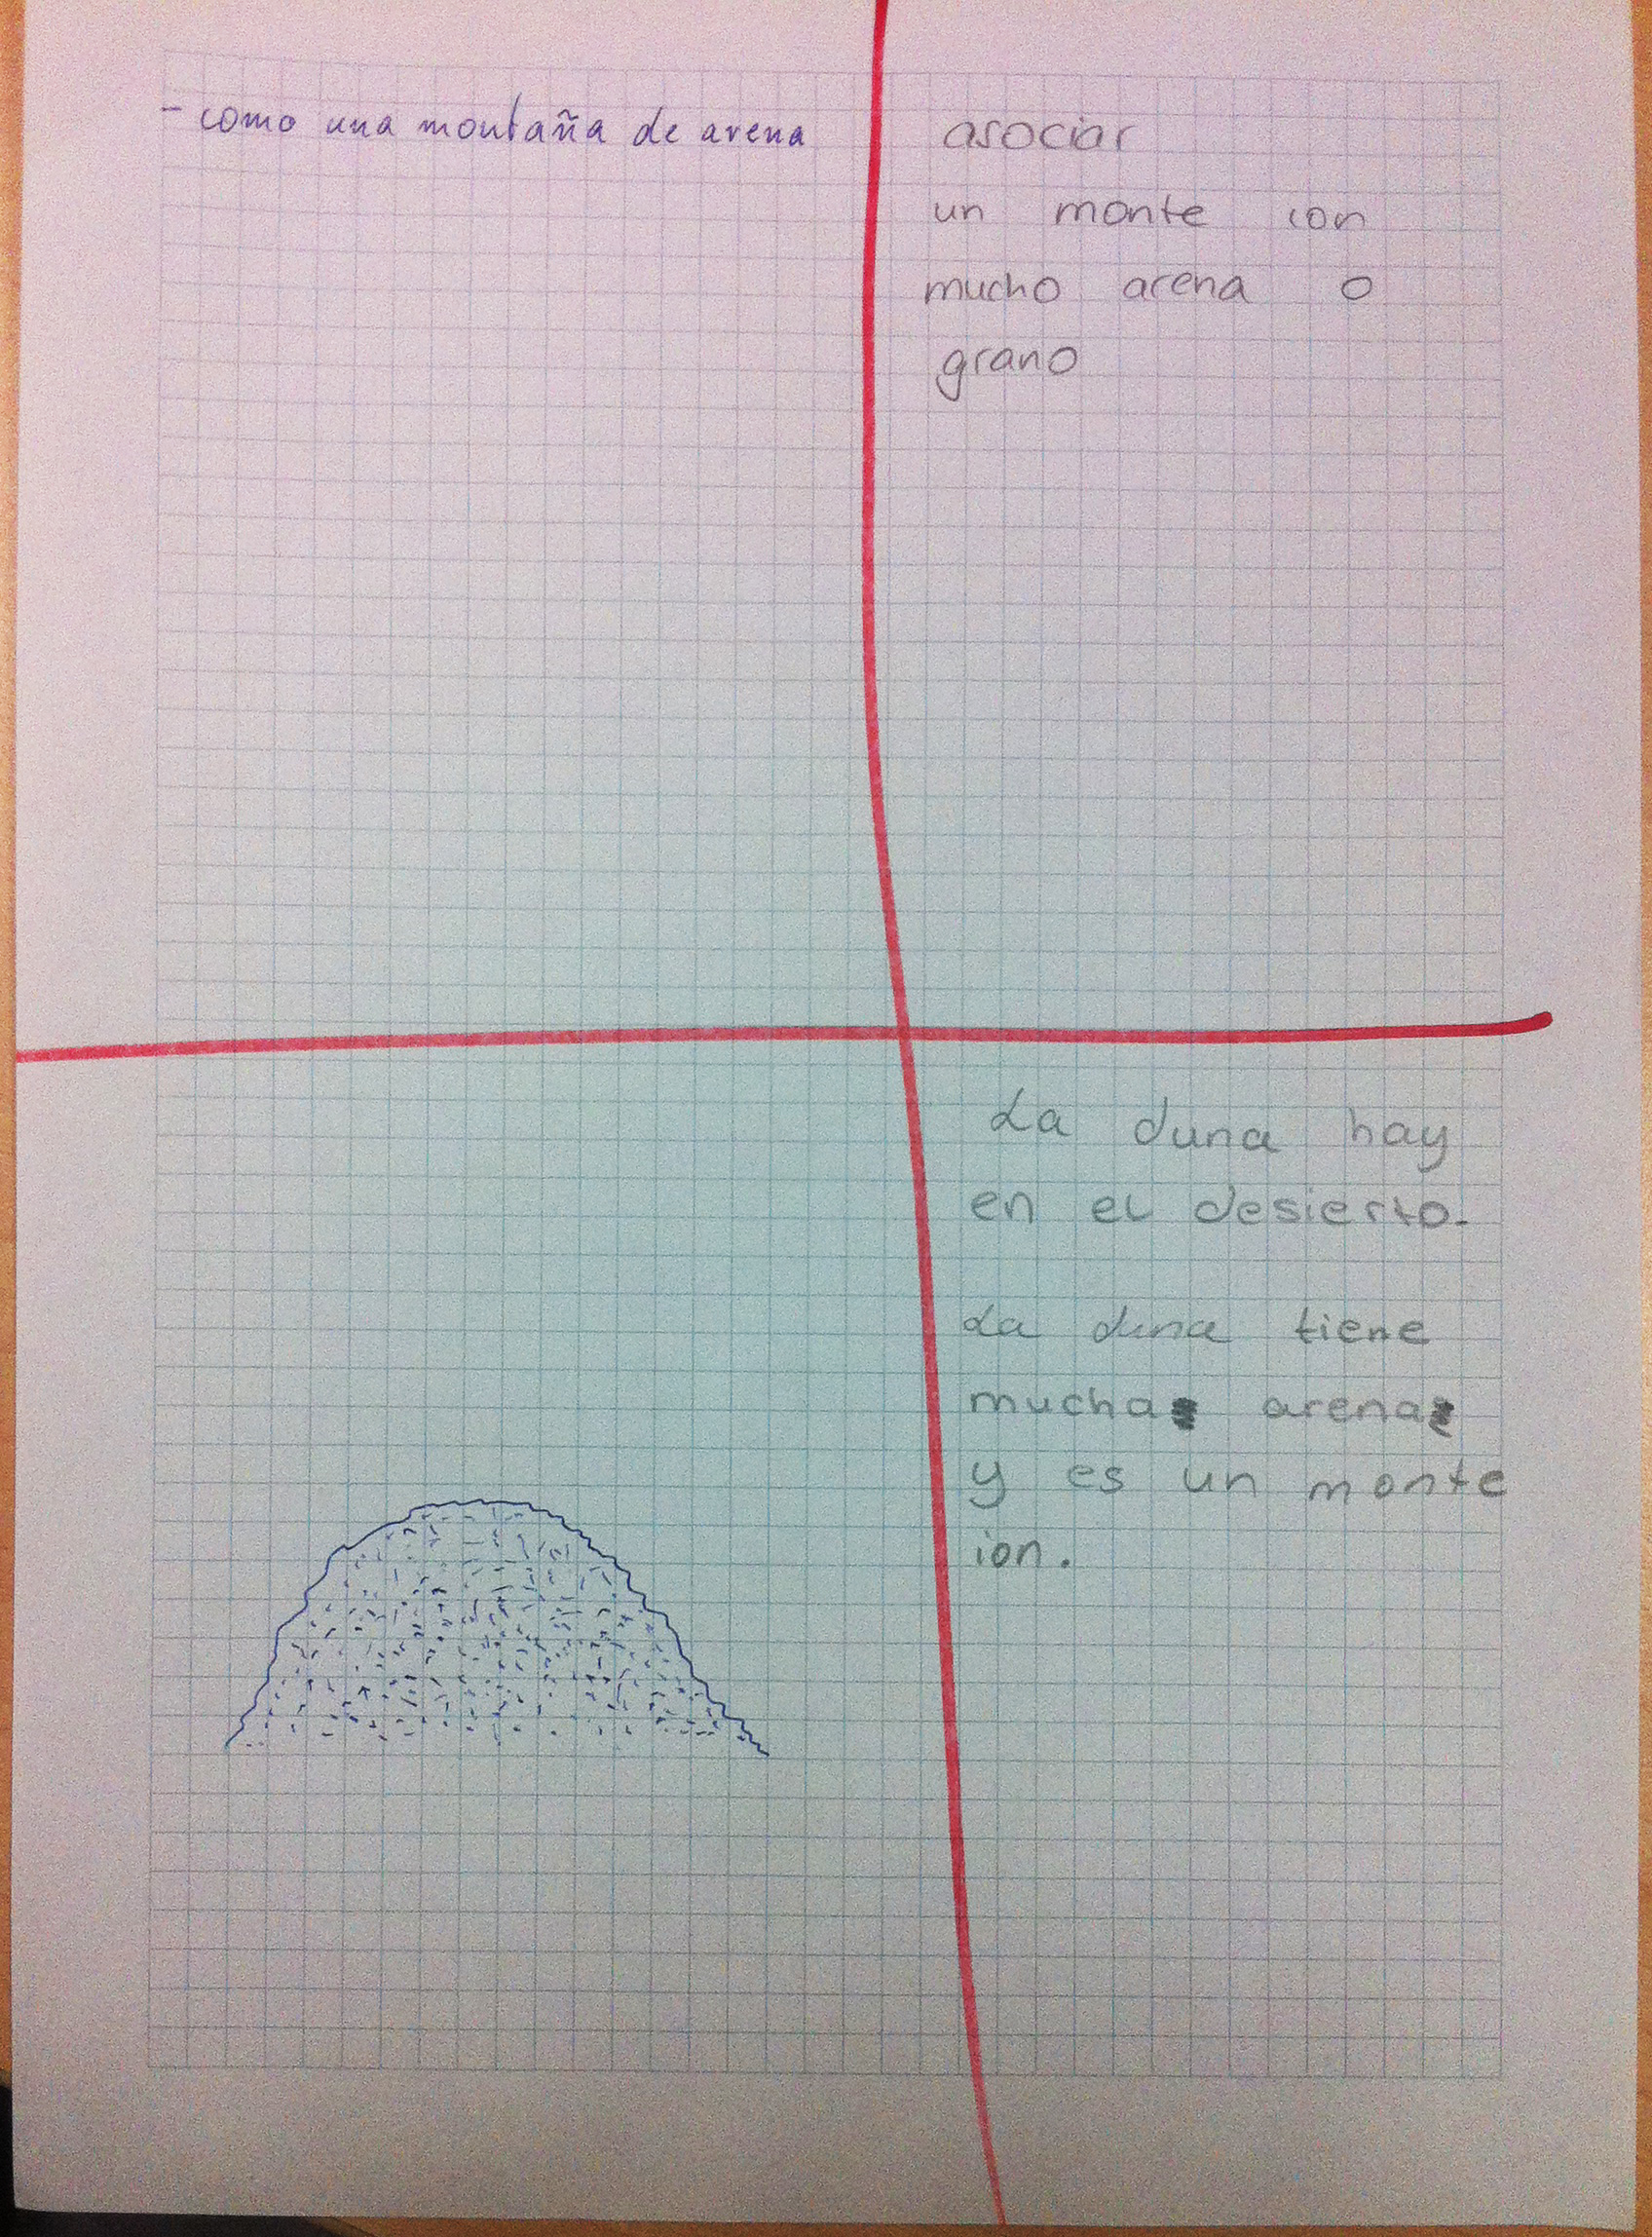 - como una montaña de arena
asociar
un monte con
mucho arena o
grano
La duna hay
en el desierto.
La duna tiene
mucha arena
y es un monte
ion.